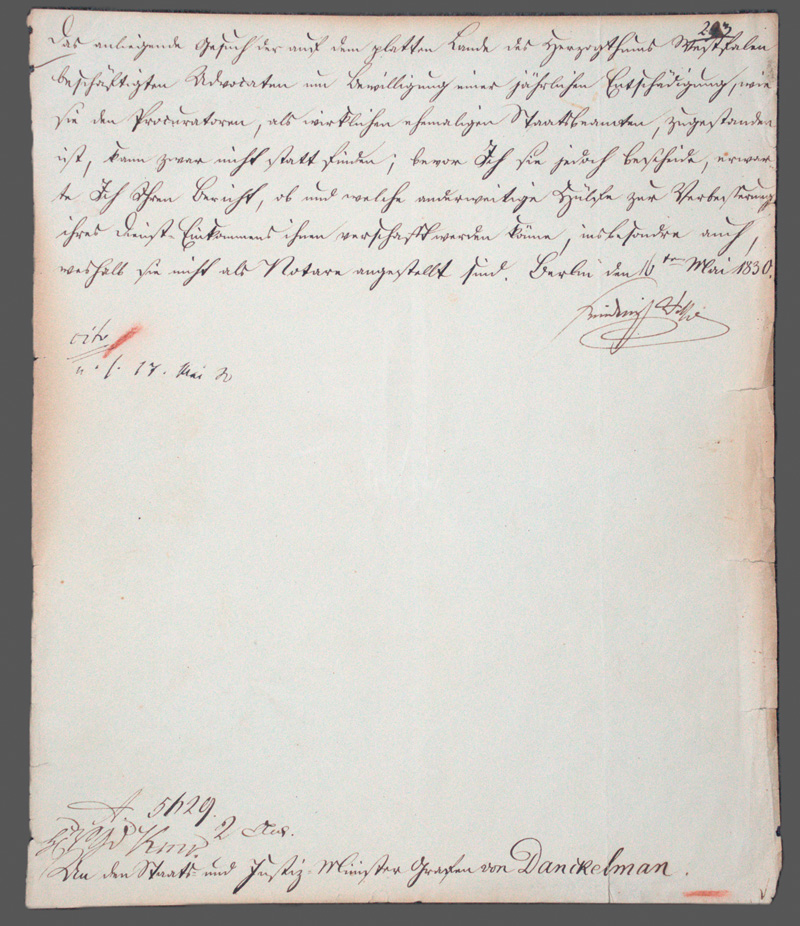 203
Das anliegende Gesuch der auf dem platten Lande des Herzogthums Westfalen
beschäftigten Advocaten um Bewilligung einer jährlichen Entschädigung, wie
sie den Procuratoren, als wirklichen ehemaligen Staatsbeamten, zugestanden
ist, kann zwar nicht statt finden; bevor Ich sie jedoch bescheide, erwar-
te Ich Ihren Bericht, ob und welche anderweitige Hülfe zur Verbesserung
ihres Dienst-Einkommens ihnen verschafft werden könne, insbesondre auch,
weshalb sie nicht als Notare angestellt sind. Berlin den 16ten Mai 1830.
Friedrich Wilhelm
cito
17. Mai 30
A 5629.
2 
An den Staats- und Justiz-Minister Grafen von Danckelman.